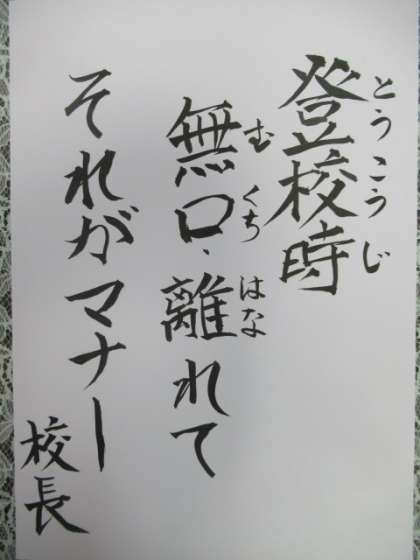 登校時
とうこうじ
無口、離れて
む くち はな
それがマナー
校長